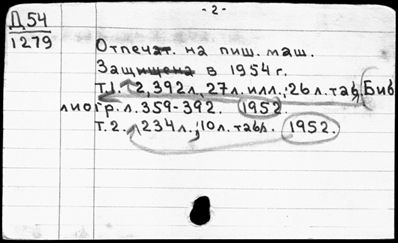 - 2 -
Д.54
1279
Отпечат. на пиш. маш.
Защищена в 1954 г.
Т.1. 2,392л., 27л. илл., 26 л. таб, Биб
лиогр. л. 359-392. 1952.
Т. 2. 234л., 10л. табл. 1952.